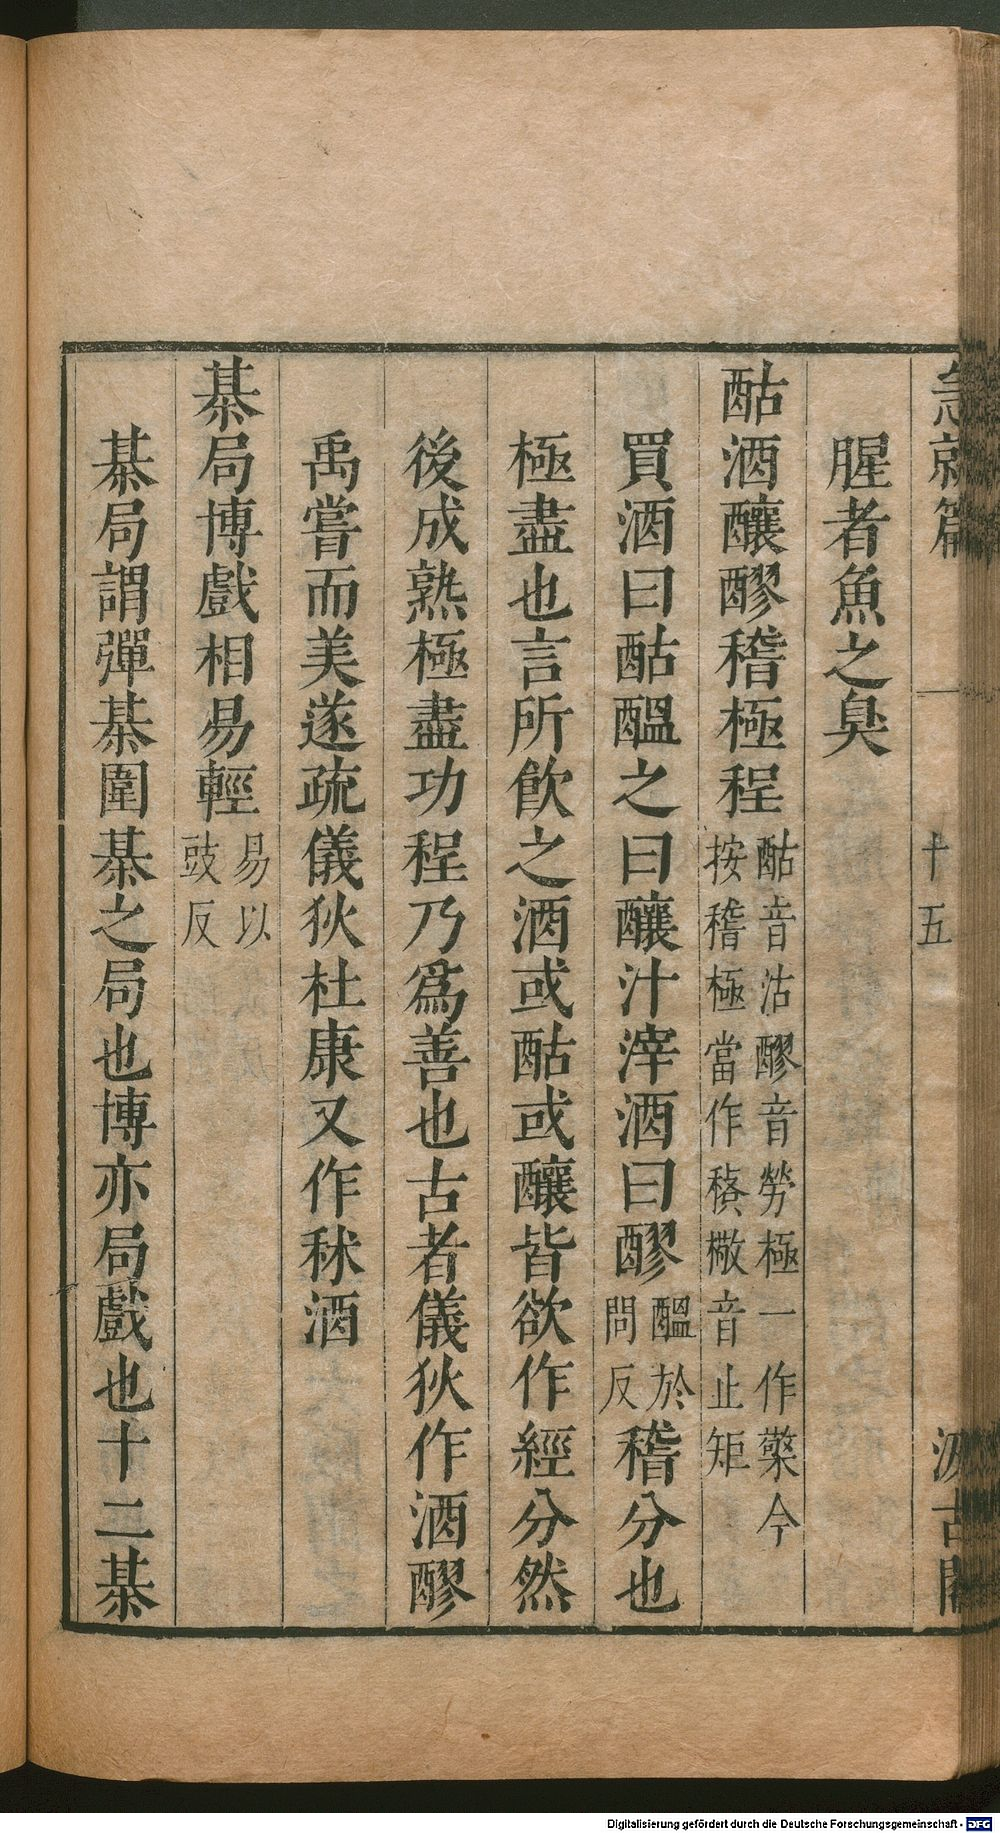 急就篇 十五 汲古閣
腥者魚之臭
酤酒釀醪稽極程 酤音沽醪音勞極一作檠今
按稽極當作𥡴檄音止矩
買酒曰酤醞之曰釀汁滓酒曰醪 醞於
問反 稽分也
極盡也言所飲之酒或酤或釀皆欲作經分然
後成熟極盡功程乃爲善也古者儀狄作酒醪
禹嘗而美遂疏儀狄杜康又作秫酒
棊局博戲相易輕 易以
豉反
棊局謂彈棊圍棊之局也博亦局戲也十二棊
Digitalisierung gefördert durch die Deutsche Forschungsgemeinschaft - DFG